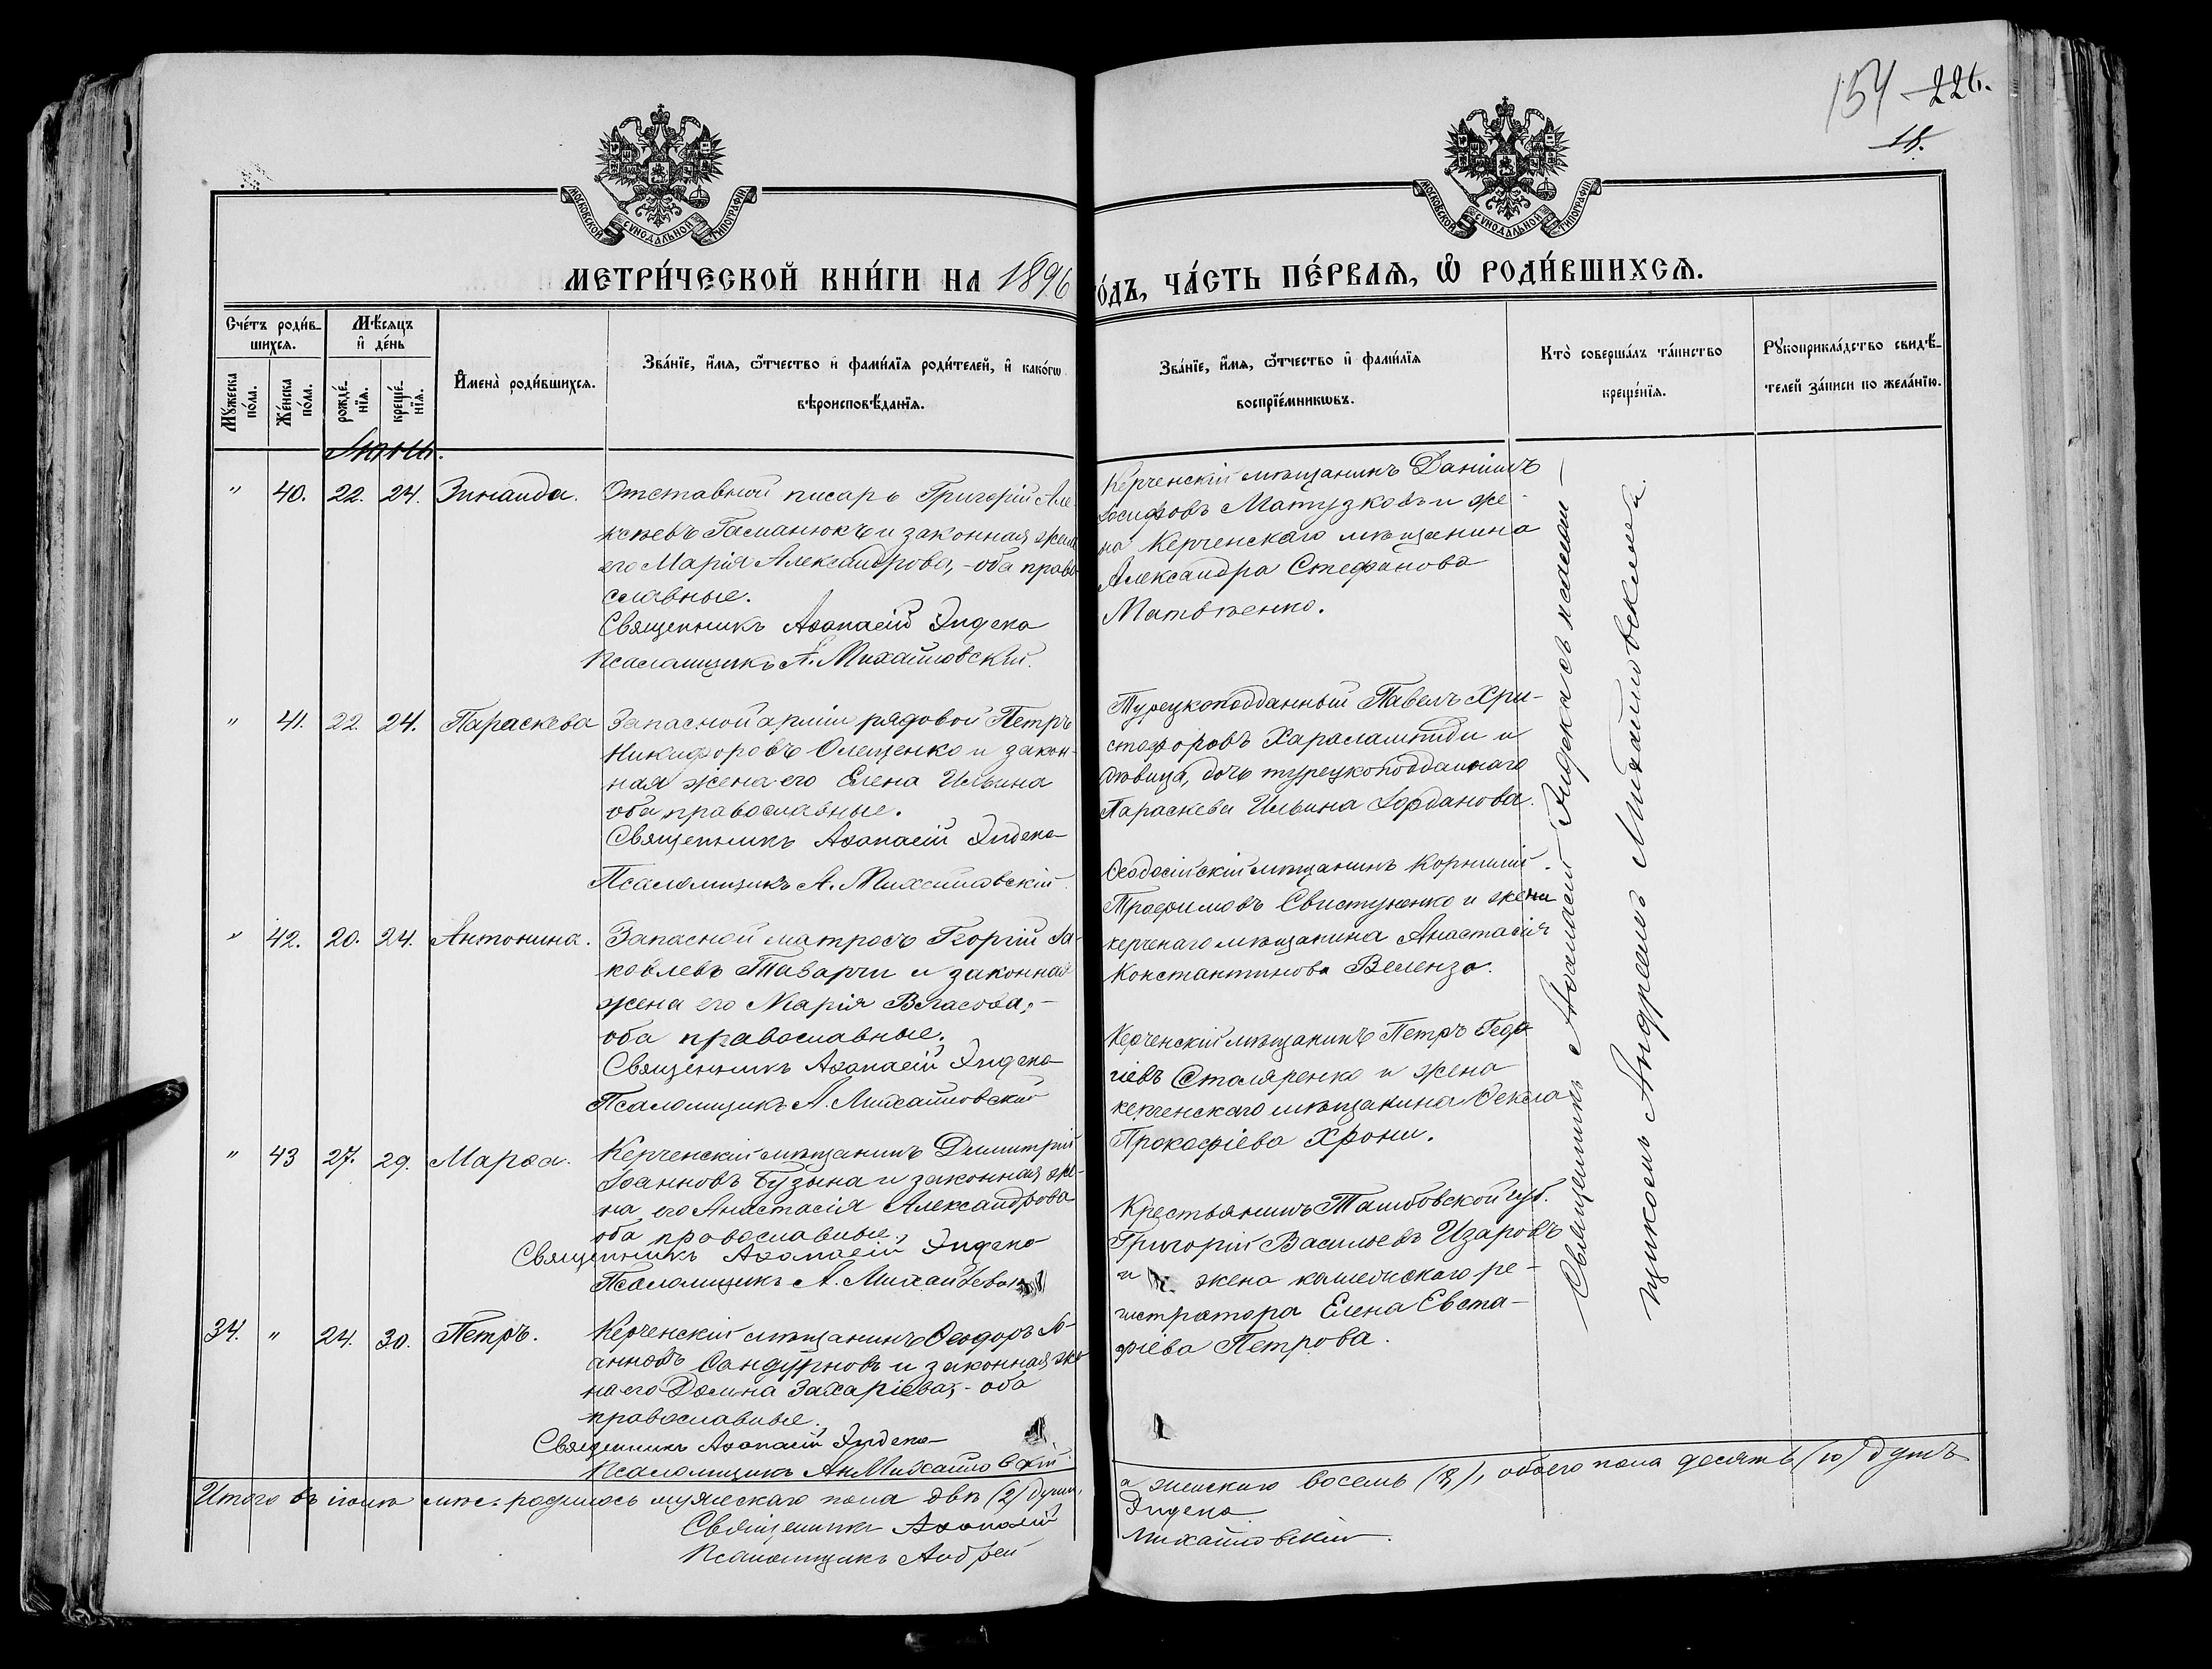 154 226.
18.
МОСКОВСКОЙ СУНОДАЛЬНОЙ ТИПОГРАФІИ
МОСКОВСКОЙ СУНОДАЛЬНОЙ ТИПОГРАФІИ
МЕТРИ́ЧЕСКОЙ КНИ́ГИ НА 1896
ГО́ДЪ, ЧА́СТЬ ПЕ́РВАѦ, Ѡ҆ РОДИ́ВШИХСѦ.
Сче́тъ роди́в-
шихсѧ.
Мꙋ́жеска по́ла.
Же́нска по́ла.
Мѣ́сѧцъ и҆ де́нь
рожде́-нїѧ.
креще́-нїѧ.
И҆мена̀ роди́вшихсѧ.
Зва́нїе, и҆́мѧ, ѻ҆́тчество и҆ фами́лїѧ роди́телей, и҆ како́гѡ
вѣроисповѣ́данїѧ.
Зва́нїе, и҆́мѧ, ѻ҆́тчество и҆ фами́лїѧ
воспрїе́мникѡвъ.
Кто̀ соверша́лъ та́инство
креще́нїѧ.
Рꙋкоприкла́дство свидѣ́-
телей за́писи по жела́нїю.
" 40. 22. 24. Зинаида. Отставной писарь Григорій Але-
ксѣевъ Гасманюкъ и законная жена
его Марія Александрова, - оба право-
славные.
Священникъ Аѳанасій Эндека
Псаломщикъ А. Михайловскій.
Керченскій мѣщанинъ Даніилъ
Іосифовъ Матузковъ и же-
на Керченскаго мѣщанина
Александра Стефанова
Матвѣенко.
" 41. 22. 24. Параскева Запасной арміи рядовой Петръ
Никифоровъ Олещенко и закон-
ная жена его Елена Ильина
оба православные.
Священникъ Аѳанасій Эндека
Псаломщикъ А. Михайловскій.
Турецкоподданный Павелъ Хри-
стофоровъ Харалампиди и
дѣвица, дочь турецкоподданнаго
Параскева Ильина Іорданова.
" 42. 20. 24. Антонина. Запасной матросъ Георгій Іа-
ковлевъ Таварчи и законная
жена его Марія Власова, -
оба православные.
Священникъ Аѳанасій Эндека
Псаломщикъ А. Михайловскій
Ѳеодосійскій мѣщанинъ Корнилій
Трофимовъ Свистуненко и жена
керченаго мѣщанина Анастасія
Константинова Велензо.
" 43 27. 29. Марѳа. Керченскій мѣщанинъ Димитрій
Іоанновъ Бузына и законная же-
на его Анастасія Александрова
оба православные.
Священникъ Аѳанасій Эндека
Псаломщикъ А.
Керченскій мѣщанинъ Петръ Геор-
гіевъ Столяренко и жена
керченскаго мѣщанина Ѳекла
Прокофіева Хрони.
34. " 24. 30. Петръ. Керченскій мѣщанинъ Ѳеодоръ Іо-
анновъ и законная же-
на его Домна Захаріева, - оба
православные.
Священникъ Аѳанасій Эндека
Псаломщикъ Ан Михайловскій
Крестьянинъ Тамбовской губ.
Григорій Васильевъ Изаровъ
и жена коллежскаго ре-
гистратора Елена Евста-
фіева Петрова.
Священникъ Аѳанасій Эндека съ псалом-
щикомъ Андреемъ Михайловскимъ
Итого въ мѣс. родилось мужескаго пола двѣ (2) души,
а женскаго восемь (8), обоего пола десять (10) душъ
Священникъ Аѳанасій Эндека
Псаломщикъ Андрей Михайловскій.